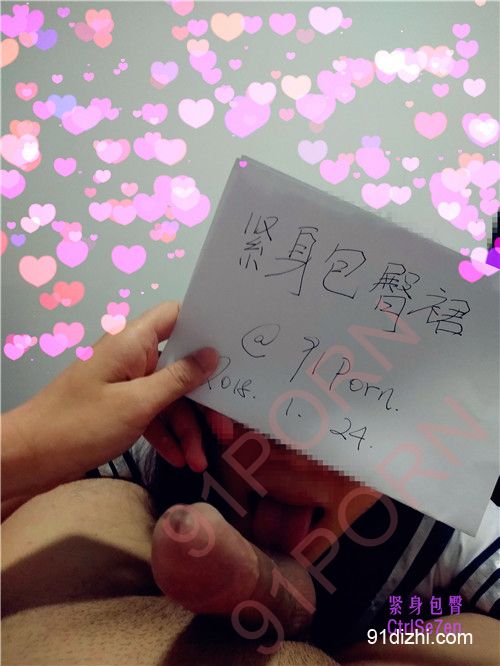 紧身包臀裙
@ 91Porn.
2018. 1. 24.
91PORN
91PORN
紧身包臀
CtrlSe7en
91dizhi.com